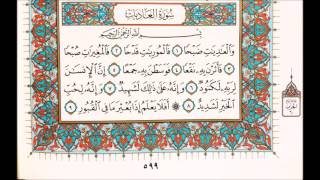 سُورَةُ العَادِيَاتِ
بِسْمِ اللَّهِ الرَّحْمَٰنِ الرَّحِيمِ
وَالْعَادِيَاتِ ضَبْحًا ١ فَالْمُورِيَاتِ قَدْحًا ٢ فَالْمُغِيرَاتِ صُبْحًا
٣ فَأَثَرْنَ بِهِ نَقْعًا ٤ فَوَسَطْنَ بِهِ جَمْعًا ٥ إِنَّ الْإِنسَانَ
لِرَبِّهِ لَكَنُودٌ ٦ وَإِنَّهُ عَلَىٰ ذَٰلِكَ لَشَهِيدٌ ٧ وَإِنَّهُ لِحُبِّ
الْخَيْرِ لَشَدِيدٌ ٨ أَفَلَا يَعْلَمُ إِذَا بُعْثِرَ مَا فِي الْقُبُورِ ٩
٥٩٩